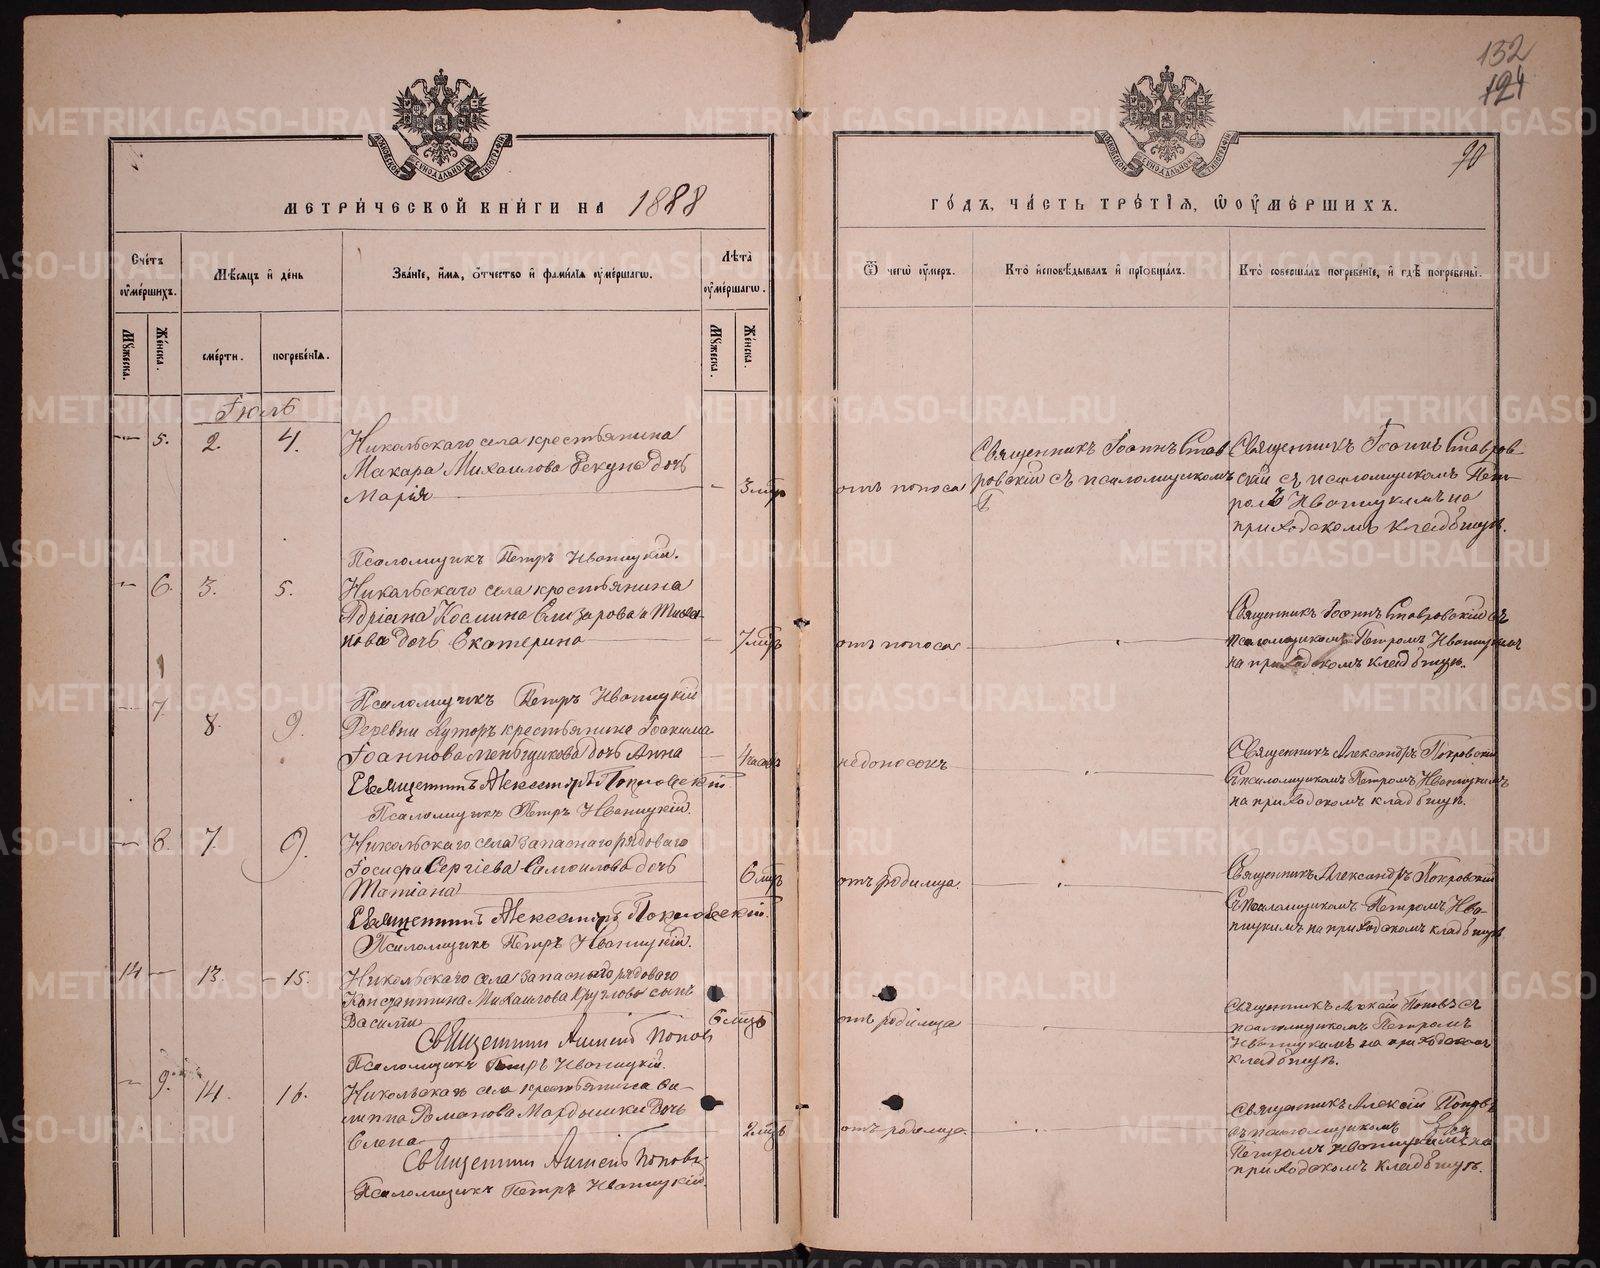 132
124
90
МЕТРИ́ЧЕСКОЙ КНИ́ГИ НА 1888
ГО́ДЪ, ЧА́СТЬ ТРЕ́ТІѦ, Ѿ ОУ҆МЕ́РШИХЪ.
Сче́тъ оу҆ме́ршихъ.
Мѣ́сяцъ и҆ де́нь
Зва́ніе, и҆́мя, ѻ҆́тчество и҆ фами́лія оу҆ме́ршагѡ.
Лѣ́та оу҆ме́ршагѡ.
Ѿ чегѡ̀ оу҆́меръ.
Кто̀ и҆сповѣ́дывалъ и҆ прїѡбща́лъ.
Кто̀ соверша́лъ погребе́ніе, и҆ гдѣ̀ погребены̀.
Мꙋжеска.
Же́нска.
сме́рти.
погребе́нія.
Мꙋжеска.
Же́нска.
Іюль
— 5. 2. 4.
Никольскаго села крестьянина
Макара Михаилова Рекуна дочь
Марія
3 мѣс
отъ поноса
Священникъ Іоаннъ Став
ровскій съ псаломщикомъ
Священникъ Іоаннъ Ставров-
скій съ псаломщикомъ Пет-
ромъ Иваницкимъ на
приходскомъ кладбищѣ.
Псаломщикъ Петръ Иваницкій.
— 6. 3. 5.
Никольскаго села крестьянина
Адріана Космина Елизарова
дочь Екатерина
7 мѣс
отъ поноса
Священникъ Іоаннъ Ставровскій съ
псаломщикомъ Петромъ Иваницкимъ
на приходскомъ кладбищѣ.
Псаломщикъ Петръ Иваницкій
— 7. 8. 9.
Деревни Хуторъ крестьянина Іоакима
Іоаннова Меньщикова дочь Анна
4 часа
недоносокъ
Священникъ Александръ Покровскій
съ псаломщикомъ Петромъ Иваницкимъ
на приходскомъ кладбищѣ.
Священникъ Александръ Покровскій.
Псаломщикъ Петръ Иваницкій.
— 8. 7. 9.
Никольскаго села запаснаго рядоваго
Іосифа Сергіева Самоилова дочь
Татіана
6 мѣс
отъ родимца.
Священникъ Александръ Покровскій
съ псаломщикомъ Петромъ Ива-
ницкимъ на приходскомъ кладбищѣ
Священникъ Александръ Покровскій.
Псаломщикъ Петръ Иваницкій.
14 — 13. 15.
Никольскаго села запаснаго рядоваго
Константина Михаилова Круглова сынъ
Василій
6 мѣсц
отъ родимца
Священникъ Алексій Поповъ съ
псаломщикомъ Петромъ
Иваницкимъ на приходскомъ
кладбищѣ.
Священникъ Алексій Поповъ
Псаломщикъ Петръ Иваницкій.
— 9. 14. 16.
Никольскаго села крестьянина Фи-
липпа Романова Мардышки дочь
Елена
2 мѣс
отъ родимца.
Священникъ Алексій Поповъ
съ псаломщикомъ
Петромъ Иваницкимъ на
приходскомъ кладбищѣ.
Священникъ Алексій Поповъ
Псаломщикъ Петръ Иваницкій.
METRIKI.GASO-URAL.RU